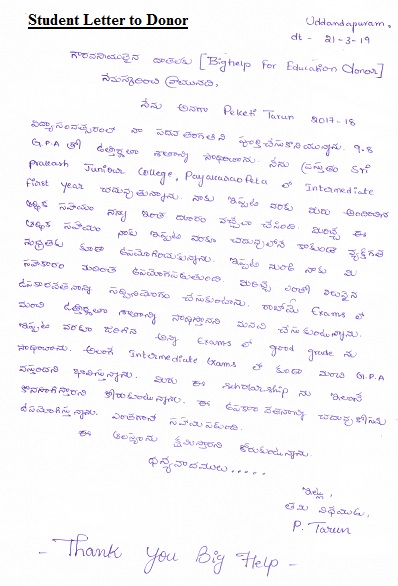 Student Letter to Donor
Uddandapuram.
dt - 21-3-19
గౌరవనీయులైన దాతలకు [Bighelp For Education donor]
నమస్కరించి వ్రాయునది,
నేను అనగా Peketi Tarun 2017-18
విద్యాసంవత్సరంలో నా పదవ తరగతిని పూర్తిచేసుకొనియున్నాను. 9.8
G.P.A తో ఉత్తీర్ణతా శాతాన్ని సాధించాను. నేను ప్రస్తుతం Sri
prakash Juniour College, Payakaraopeta లో Intermediate
First year చదువుతున్నాను. నాకు ఇప్పటి వరకు మీరు అందించిన
ఆర్థిక సహాయం నన్ను ఇంత దూరం వచ్చేలా చేసింది. మీరిచ్చే ఈ
ఆర్థిక సహాయం నాకు ఇప్పటి వరకూ చదువులోనే కాకుండా వ్యక్తిగత
కూడా ఉపయోగించుకున్నాను. ఇప్పటి నుంచి నాకు మీ
సహకారం మరింత ఉపయోగపడుతుంది. మీరిచ్చే ఎంతో విలువైన
ఉపకారవేతనాన్ని సద్వినియోగం చేసుకుంటాను. రాబోయే Exams లో
మంచి ఉత్తీర్ణతా శాతాన్ని సాధిస్తానని మనవి చేసుకుంటున్నాను.
ఇప్పటి వరకూ జరిగిన అన్ని Exams లో good grade ను
సాధించాను. అలాగే Intermediate Exams లో కూడా మంచి G.P.A
వస్తుందని భావిస్తున్నాను. మీరు ఈ scholarship ను ఇలానే
కొనసాగిస్తారని కోరుకుంటున్నాను. ఈ ఉపకార వేతనాన్ని చదువు కోసమే
ఉపయోగిస్తున్నాను. ఎంతగానో సహాయపడింది.
ఈ ఆలస్యాను క్షమిస్తారని కోరుకుంటున్నాను.
ధన్యవాదములు.....
ఇట్లు,
తమ విధేయుడు,
P. Tarun
- Thank you Big Help -